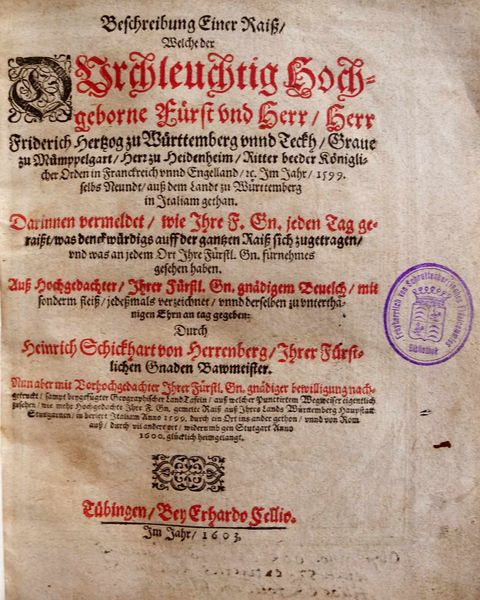 Beschreibung Einer Raiß/
Welche der
DUrchleuchtig Hoch-
geborne Fürst vnd Herr / Herr
Friderich Hertzog zu Württemberg vnnd Teckh / Graue
zu Mümppelgart / Herr zu Heidenheim / Ritter beeder Königli-
cher Orden in Franckreich vnnd Engelland / ꝛc. Im Jahr / 1599.
selbs Neundt / auß dem Landt zu Württemberg
in Italiam gethan.
Darinnen vermeldet / wie Ihre F. Gn. jeden Tag ge-
raißt / was denckwürdigs auff der gantzen Raiß sich zugetragen /
vnd was an jedem Ort Ihre Fürstl. Gn. fürnehmes
gesehen haben.
Auß Hochgedachter / Ihrer Fürstl. Gn. gnädigem Beuelch / mit
sonderm fleiß / jedeßmals verzeichnet / vnnd derselben zu vnterthä-
nigen Ehrn an tag gegeben:
Durch
Heinrich Schickhart von Herrenberg / Ihrer Fürst-
lichen Gnaden Bawmeister.
Nun aber mit Vorhochgedachter Ihrer Fürstl. Gn. gnädiger bewilligung nach-
getruckt / sampt beygefügter Geographischer LandTafeln / auß welcher Punctirtem Wegweiser eigentlich
zusehen / wie mehr Hochgedachte Ihre F. Gn. gemelte Raiß auß Ihres Lands Württemberg Hauptstatt
Stutgarten / in berürt Italiam Anno 1599. durch ein Ort ins ander gethon / vnnd von Rom
auß / durch vil andere ort / widerumb gen Stutgart Anno
1600. glücklich heimgelangt.
Tübingen / Bey Erhardo Cellio.
Im Jahr / 1603.
Bibliothek